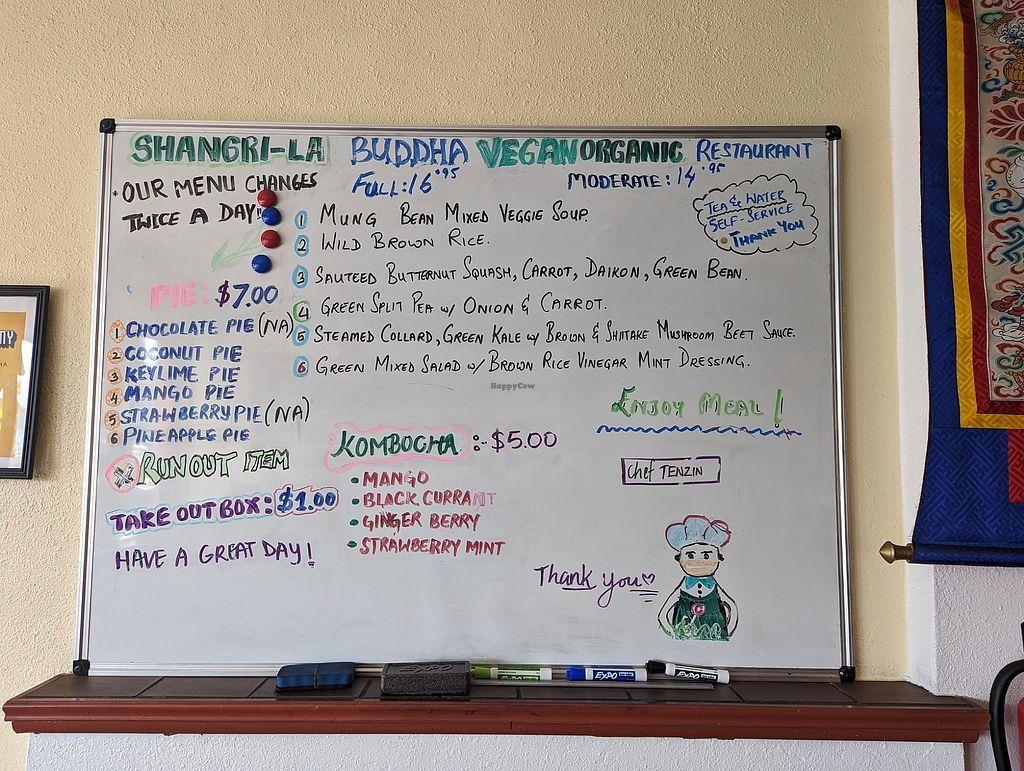 SHANGRI-LA BUDDHA VEGAN ORGANIC RESTAURANT
* OUR MENU CHANGES
TWICE A DAY!
FULL: 16.95
MODERATE: 14.95
TEA & WATER
SELF-SERVICE
THANK YOU
1 MUNG BEAN MIXED VEGGIE SOUP.
2 WILD BROWN RICE.
3 SAUTEED BUTTERNUT SQUASH, CARROT, DAIKON, GREEN BEAN.
4 GREEN SPLIT PEA W/ ONION & CARROT.
5 STEAMED COLLARD, GREEN KALE W/ BROWN & SHITAKE MUSHROOM BEET SAUCE.
6 GREEN MIXED SALAD W/ BROWN RICE VINEGAR MINT DRESSING.
PIE: $7.00
1 CHOCOLATE PIE (NA)
2 COCONUT PIE
3 KEYLIME PIE
4 MANGO PIE
5 STRAWBERRY PIE (NA)
6 PINEAPPLE PIE
X RUN OUT ITEM
TAKE OUT BOX: $1.00
HAVE A GREAT DAY!
KOMBOCHA :- $5.00
• MANGO
• BLACK CURRANT
• GINGER BERRY
• STRAWBERRY MINT
HappyCow
ENJOY MEAL!
Chef TENZIN
Thank you
EXPO
EXPO
EXPO